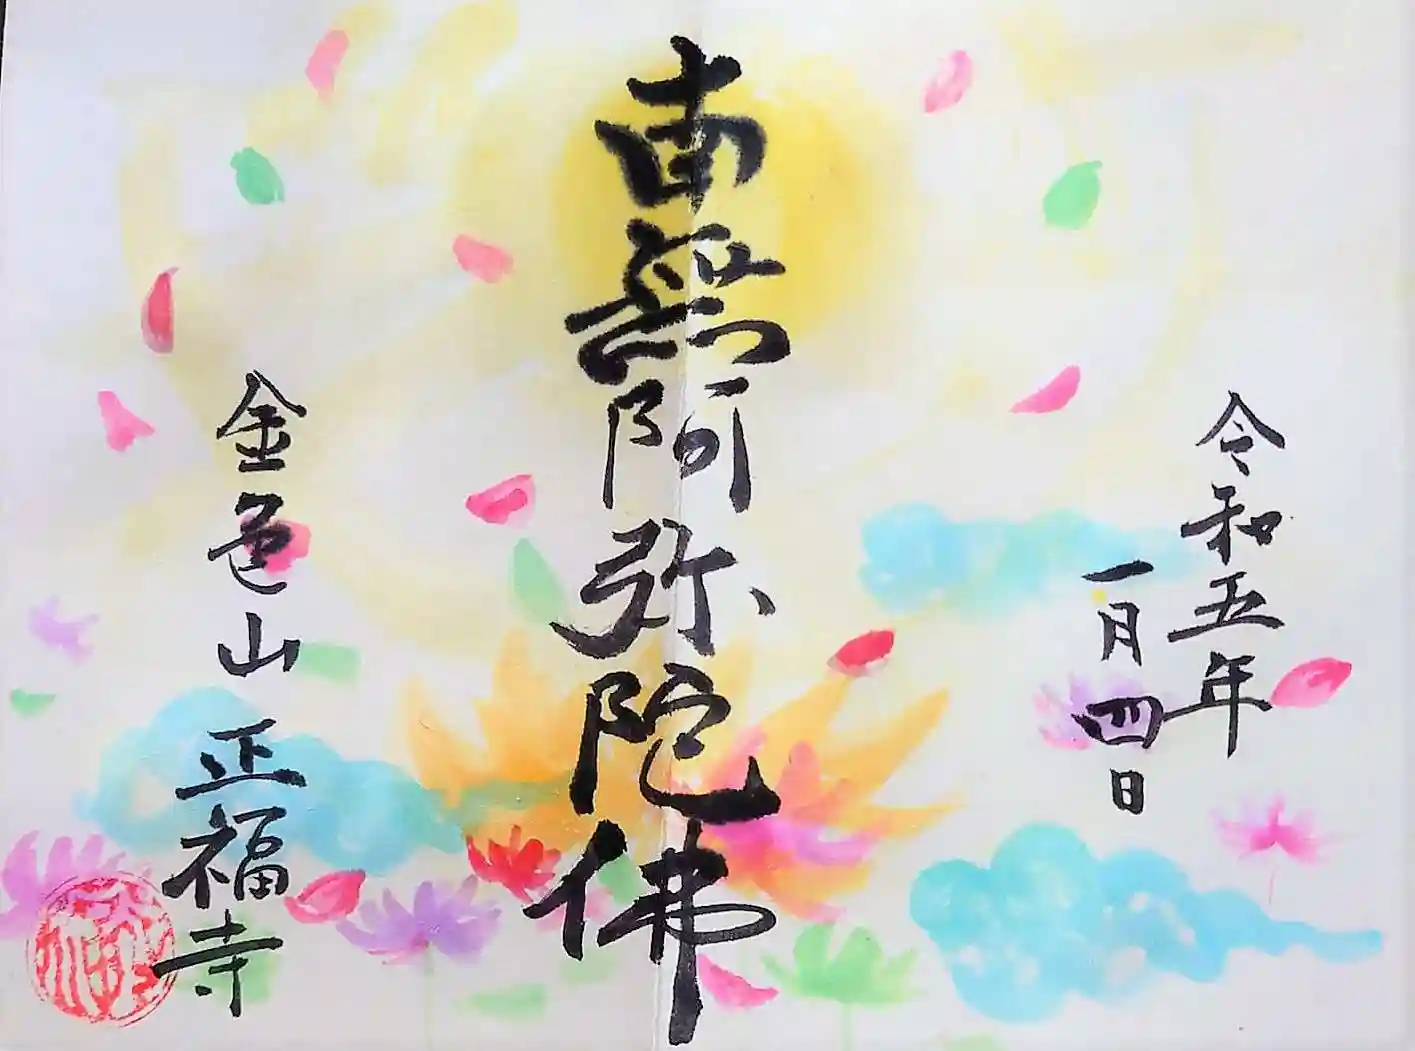 令和五年
一月四日
南無阿弥陀佛
金色山 正福寺